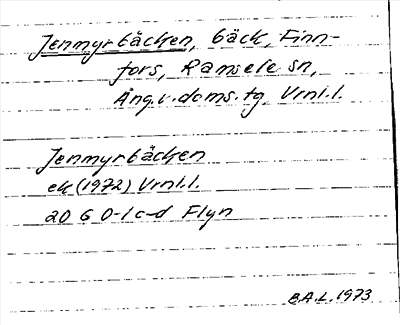 Jenmyrbäcken, bäck, Finn-
fors, Ramsele sn,
Ång.v.doms.tg Vrnl.l.
Jenmyrbäcken
ek (1972) Vrnl.l.
20 G 0-1 c-d Flyn
B.A.L. 1973